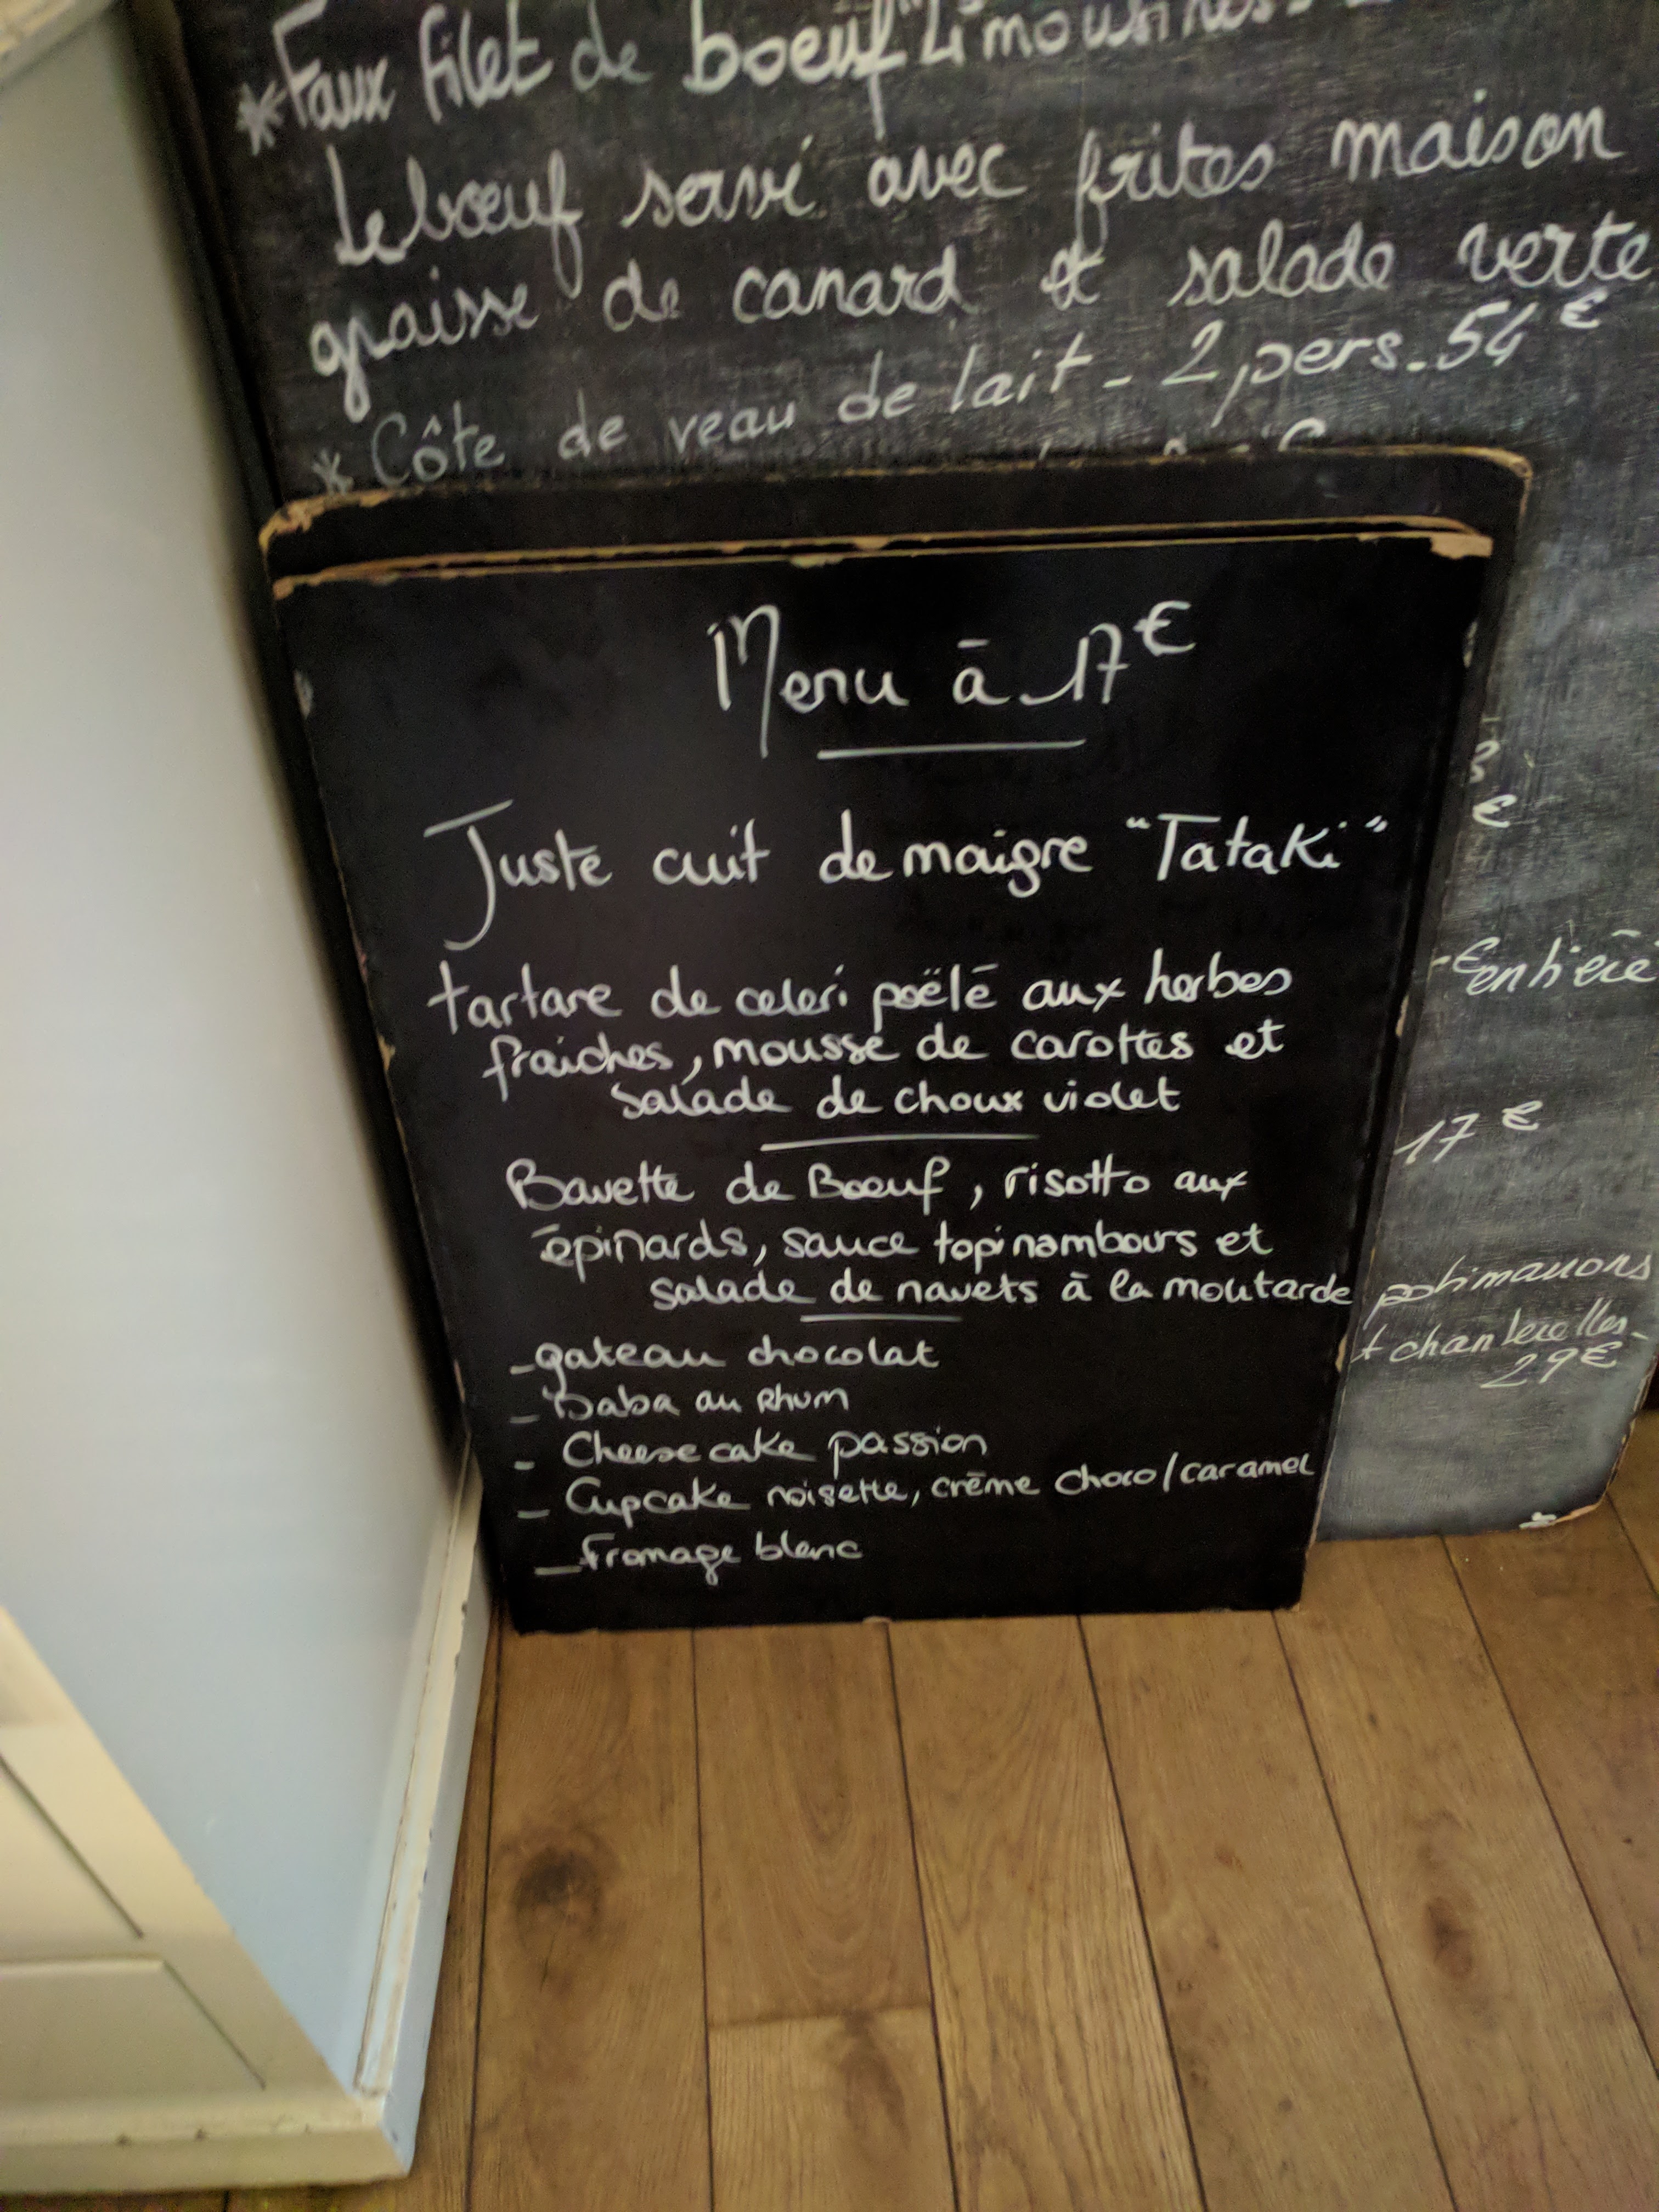 *Faux filet de boeuf "Limousin
Le bœuf servi avec frites maison
graisse de canard et salade verte.
* Côte de veau de lait - 2 pers. 54€
Menu à 17€
Juste cuit de maigre "Tataki"
tartare de celeri poëlé aux herbes
fraiches, mousse de carottes et
salade de choux violet
Bavette de Bœuf, risotto aux
épinards, sauce topinambours et
salade de navets à la moutarde
- gateau chocolat
- Baba au Rhum
- Cheese cake passion
- Cupcake noisette, crème choco/caramel
- Fromage blanc
€
entière
17€
potimarrons
chanterelles.
29€